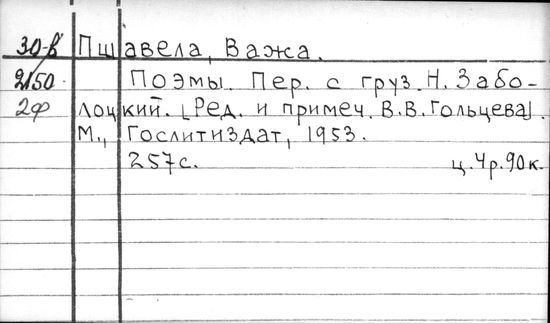 30-в Пшавела, Важа.
2150 Поэмы. Пер. с груз. Н. Забо-
2ф лоцкий. [Ред. и примеч. В.В. Гольцева].
М., Гослитиздат, 1953.
257с. ц. 4р. 90к.